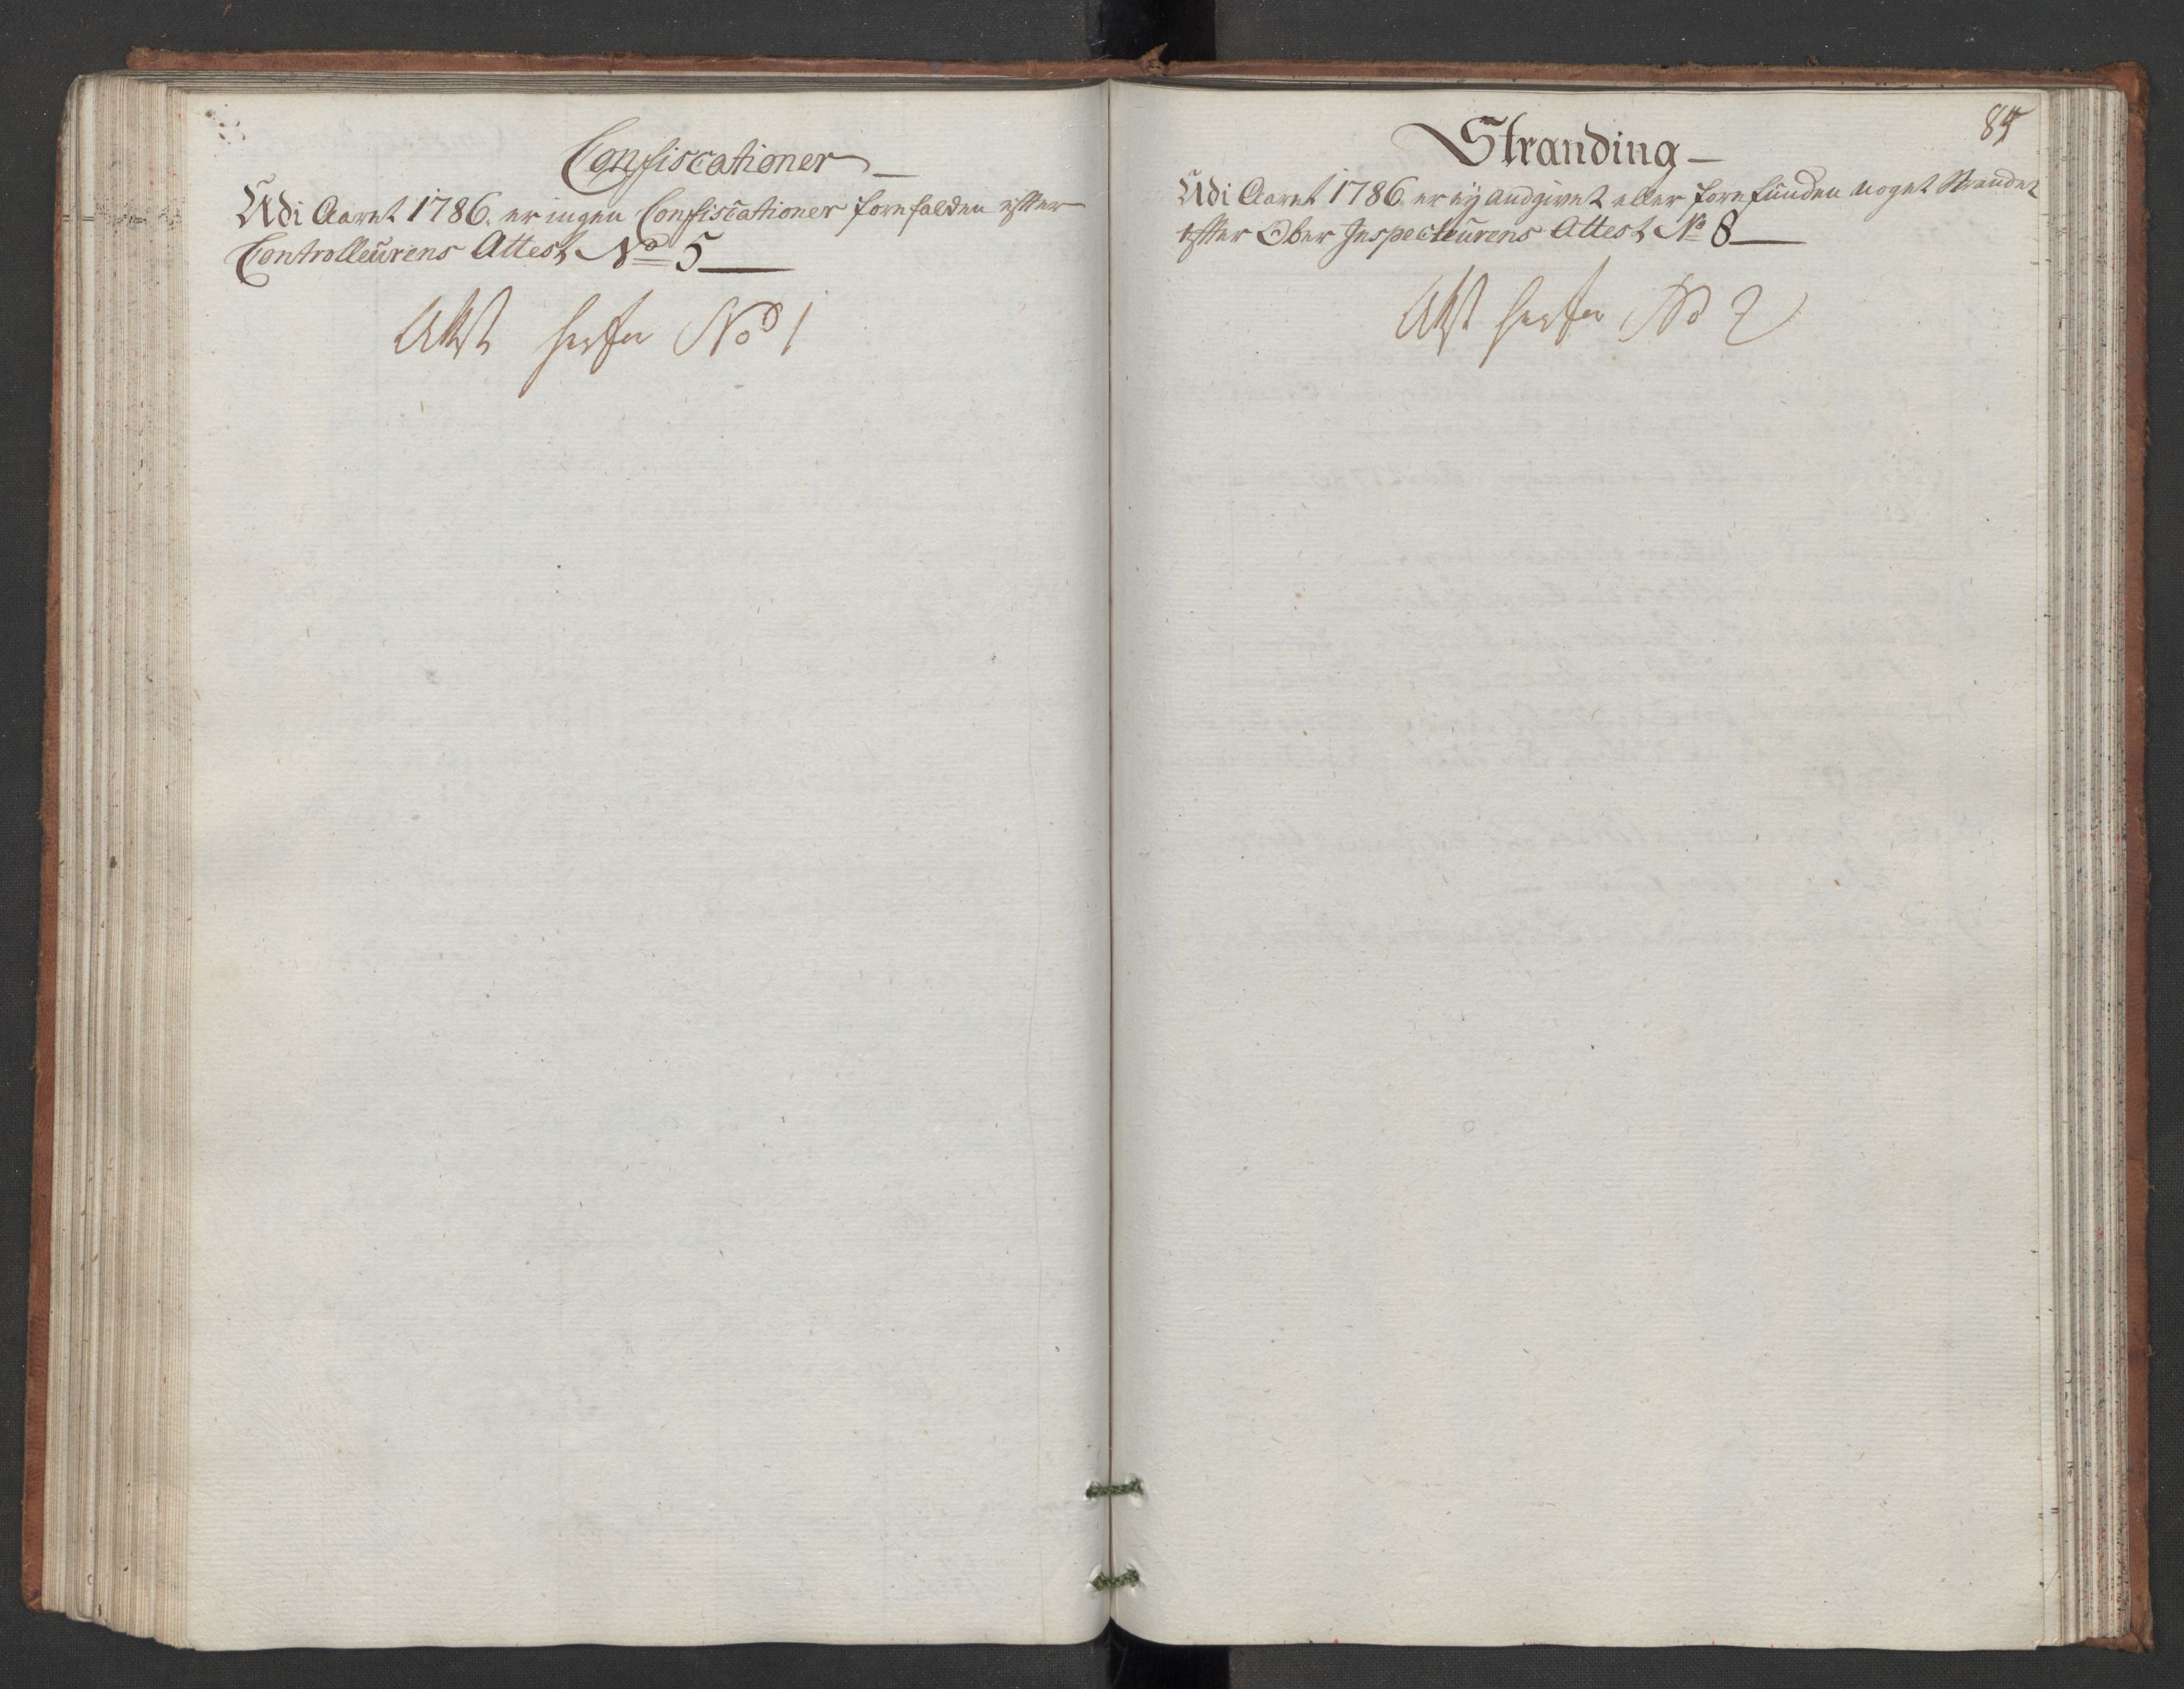 Confiscationer
Udi Aaret 1786. er ingen Confiscationer forefalden efter
Controlleurens Attest No 5
Attest No 1
84
Stranding
Udi Aaret 1786. er ej andgivet eller forefunden noget Strandet
efter Ober Inspecteurens Attest No 8
Attest No 2